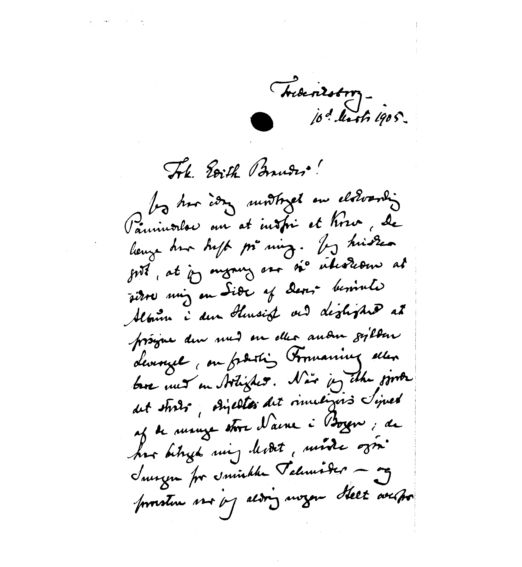 Frederiksborg
10d Marts 1905.
Frk. Edith Brandes!
Jeg har idag modtaget en elskværdig
Påmindelse om at indfri et Krav, De
længe har haft på mig. Jeg husker
godt, at jeg engang var så ubeskeden at
sikre mig en Side af Deres berømte
Album i den Hensigt ved Lejlighed at
forsyne den med en eller anden gylden
Leveregel, en faderlig Formaning eller
bare med en Artighed. Når jeg ikke gjorde
det straks, skyldtes det rimeligvis Synet
af de mange store Navne i Bogen; de
har betaget mig Modet, måske også
Smagen for smukke Talemåder — og
forresten var jeg aldrig nogen Helt overfor